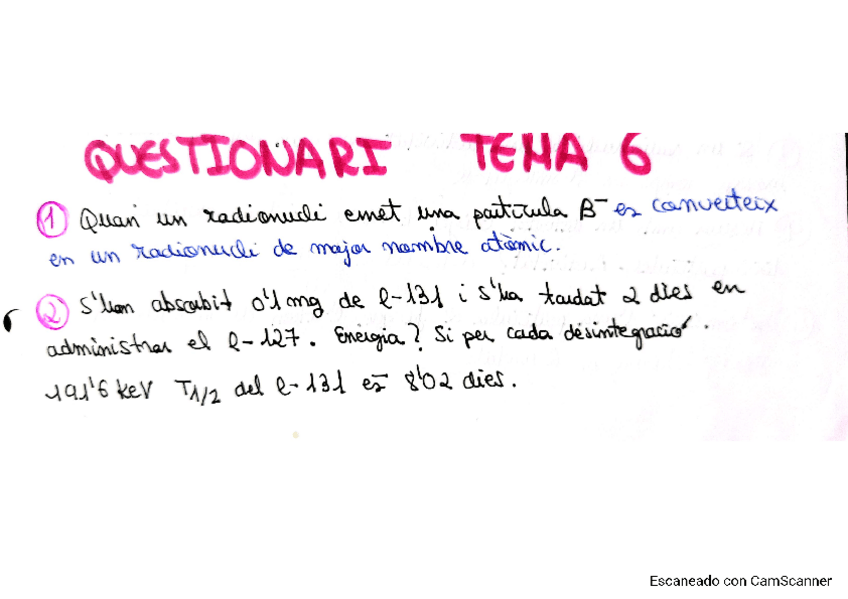 QUESTIONARI TEMA 6
1 Quan un radionucli emet una partícula B⁻ es converteix
en un radionucli de major nombre atòmic.
2 S'han absorbit 0'1 mg de I-131 i s'ha tardat 2 dies en
administrar el I-127. Energia? Si per cada desintegració.
191'6 keV T1/2 del I-131 és 8'02 dies.
Escaneado con CamScanner